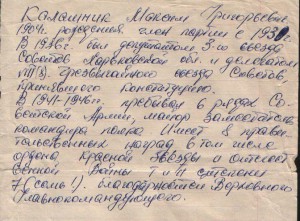 Калашник Максим Григорьевич
1904 рождения. член партии с 1930
В 1936 г. был депутатом 3-го съезда
Советов Харьковской обл. и делегатом
VIII(8) Чрезвычайного съезда Советов,
принявшего Конституцию.
В 1941-1946 гг. пребывал в рядах Со-
ветской Армии, майор заместитель
командира полка. Имеет 8 правит-
тельственных наград в том числе
ордена Красной Звезды и отечест-
венной Войны I и II степени
7 (семь) благодарностей Верховного
Главнокомандующего.